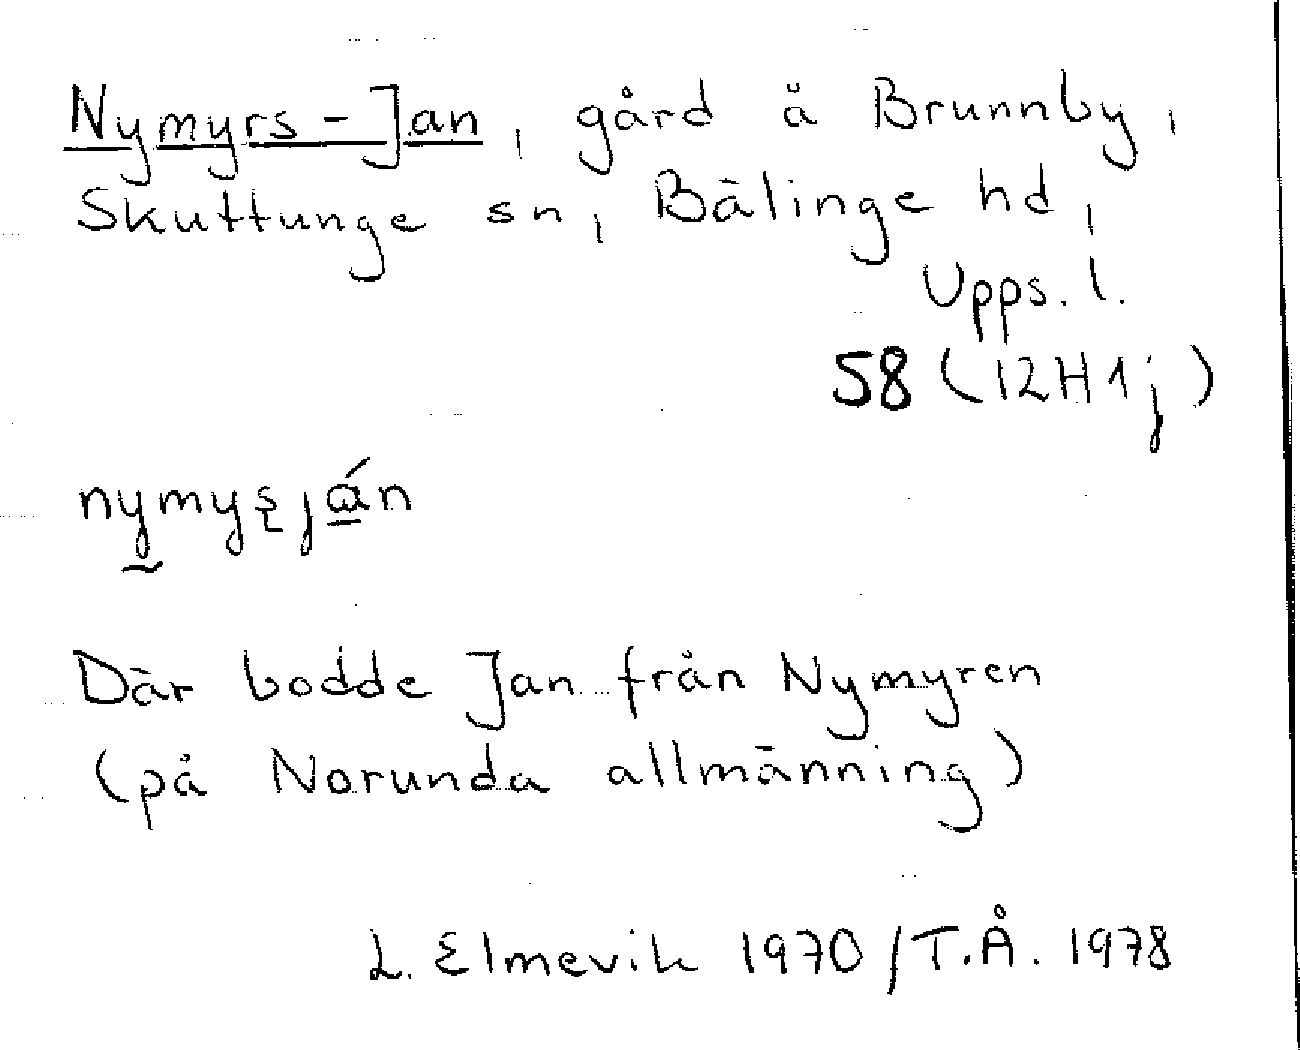 Nymyrs-Jan, gård å Brunnby,
Skuttunge sn, Bälinge hd,
Upps. l.
58 (12H1j)
nymyșján
Där bodde Jan från Nymyren
(på Norunda allmänning)
L. Elmevik 1970/T.Å. 1978